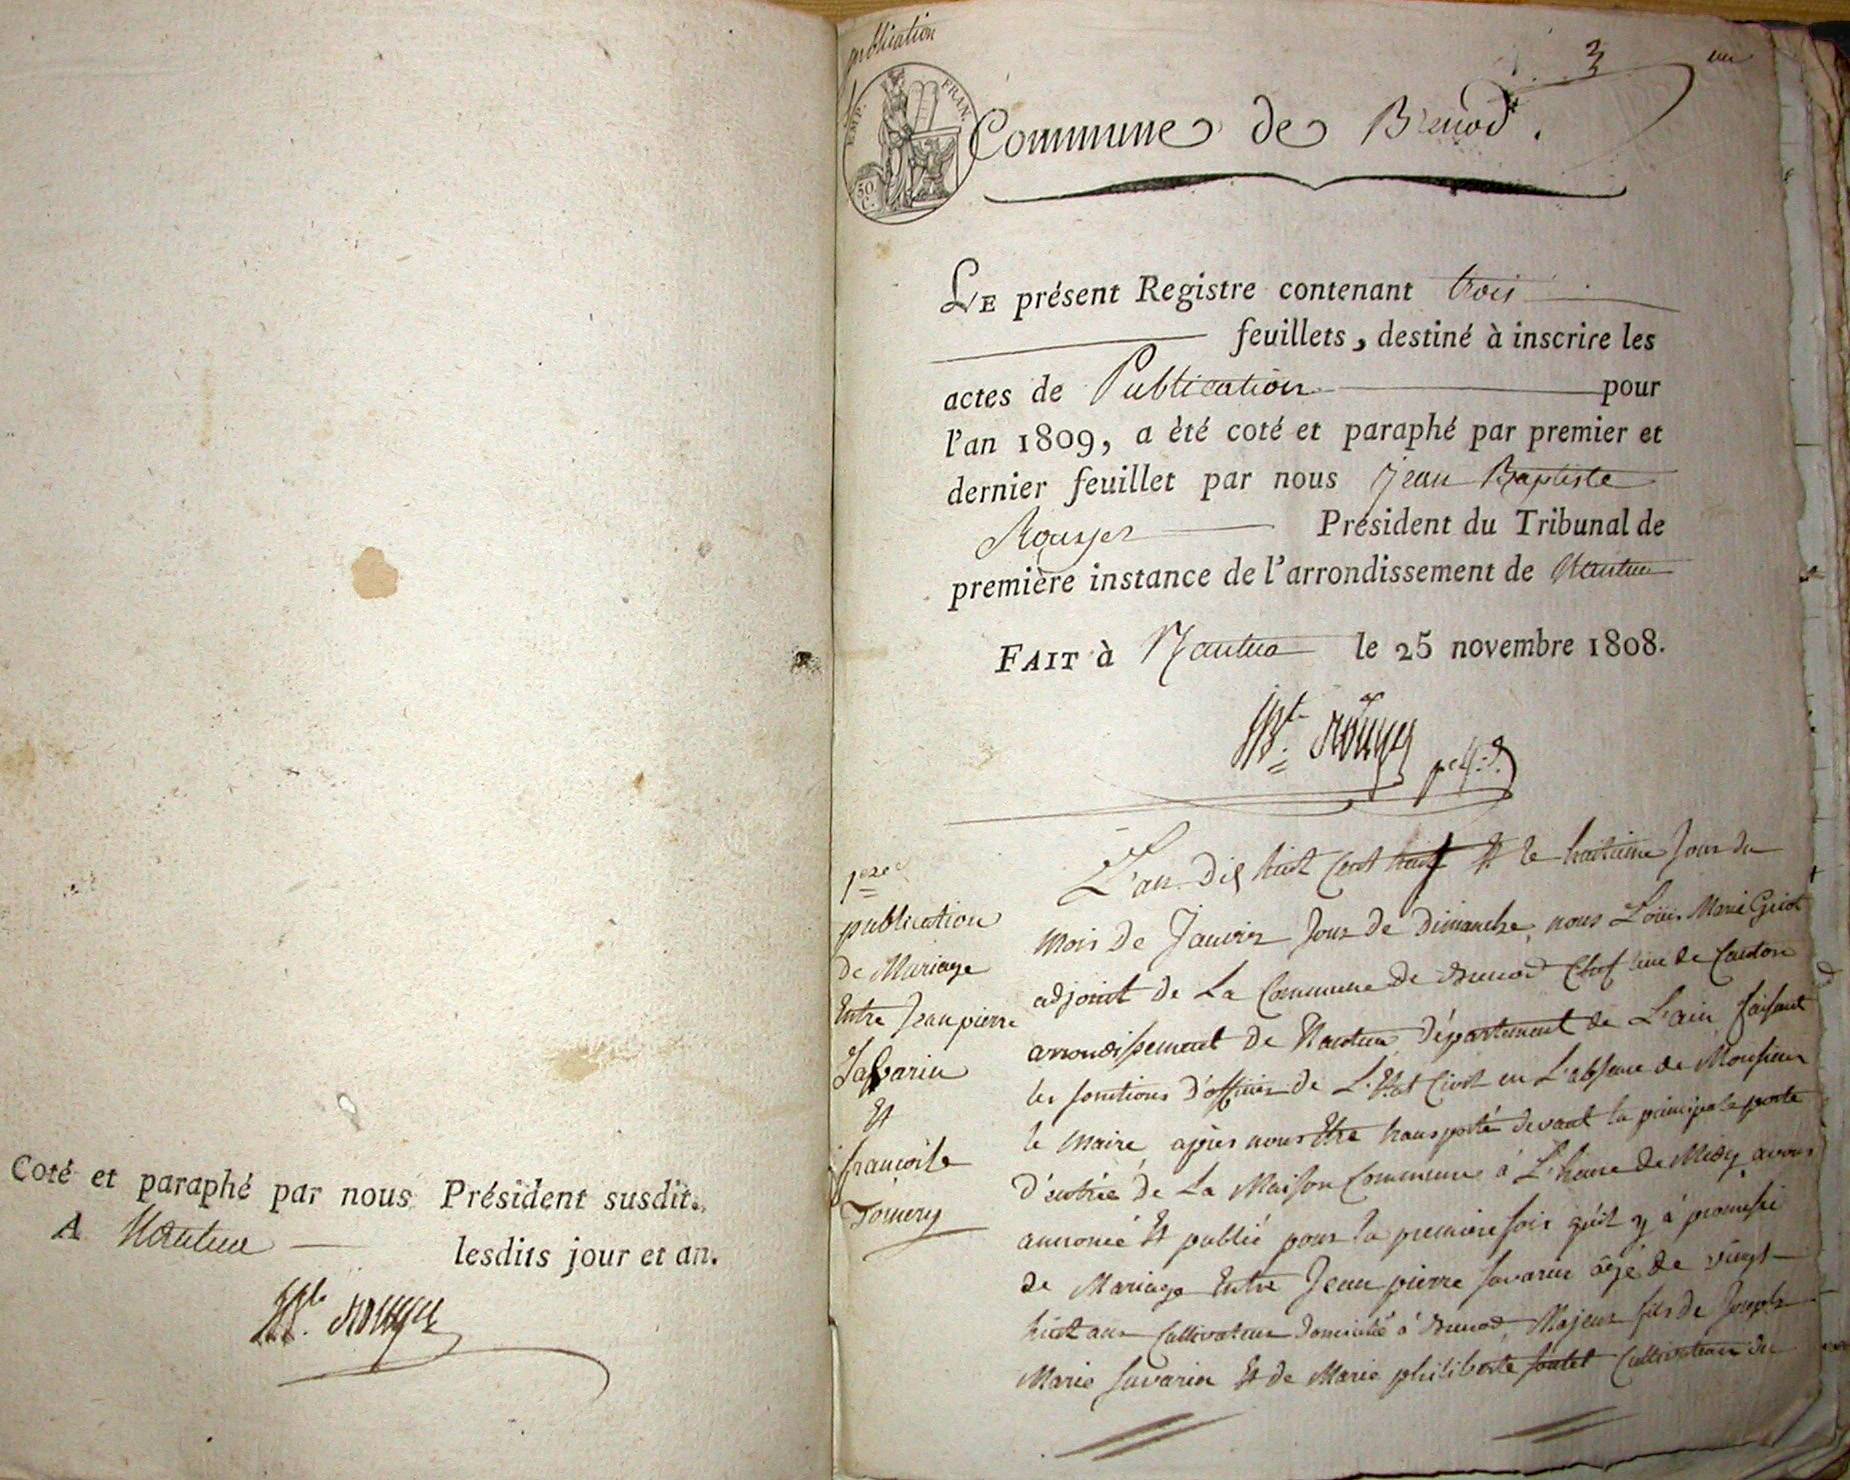 Coté et paraphé par nous Président susdit.
A Nantua lesdits jour et an.
publication
3
EMP. FRAN.
50 C.
Commune de Brenod.
LE présent Registre contenant trois
feuillets, destiné à inscrire les
actes de Publication pour
l'an 1809, a été coté et paraphé par premier et
dernier feuillet par nous Jean Baptiste
Rouyer Président du Tribunal de
première instance de l'arrondissement de Nantua
FAIT à Nantua le 25 novembre 1808.
Bte. Rouyer
1ere
publication
de Mariage
Entre Jean pierre
Savarin
Et
francoise
L'an Dix huit Cent huit Et le huitieme Jour du
Mois de Janvier Jour de dimanche, nous Loüis Marie
adjoint de La Commune de Brenod Chef lieu de Canton
arrondissement de Nantua, département de L'ain faisant
les fonctions d'officier de L'Etat Civil en L'absence de Monsieur
le Maire, après nous Etre transporté devant la principale porte
d'entrée de La Maison Commune á L'heure de Midy, avons
annoncé Et publié pour la premiere fois qu'il y á promesse
de Mariage Entre Jean pierre Savarin âgé de vingt
huit ans Cultivateur domicilié á Brenod, Majeur fils de Joseph
Marie Savarin Et de Marie philiberte Cultivateur du